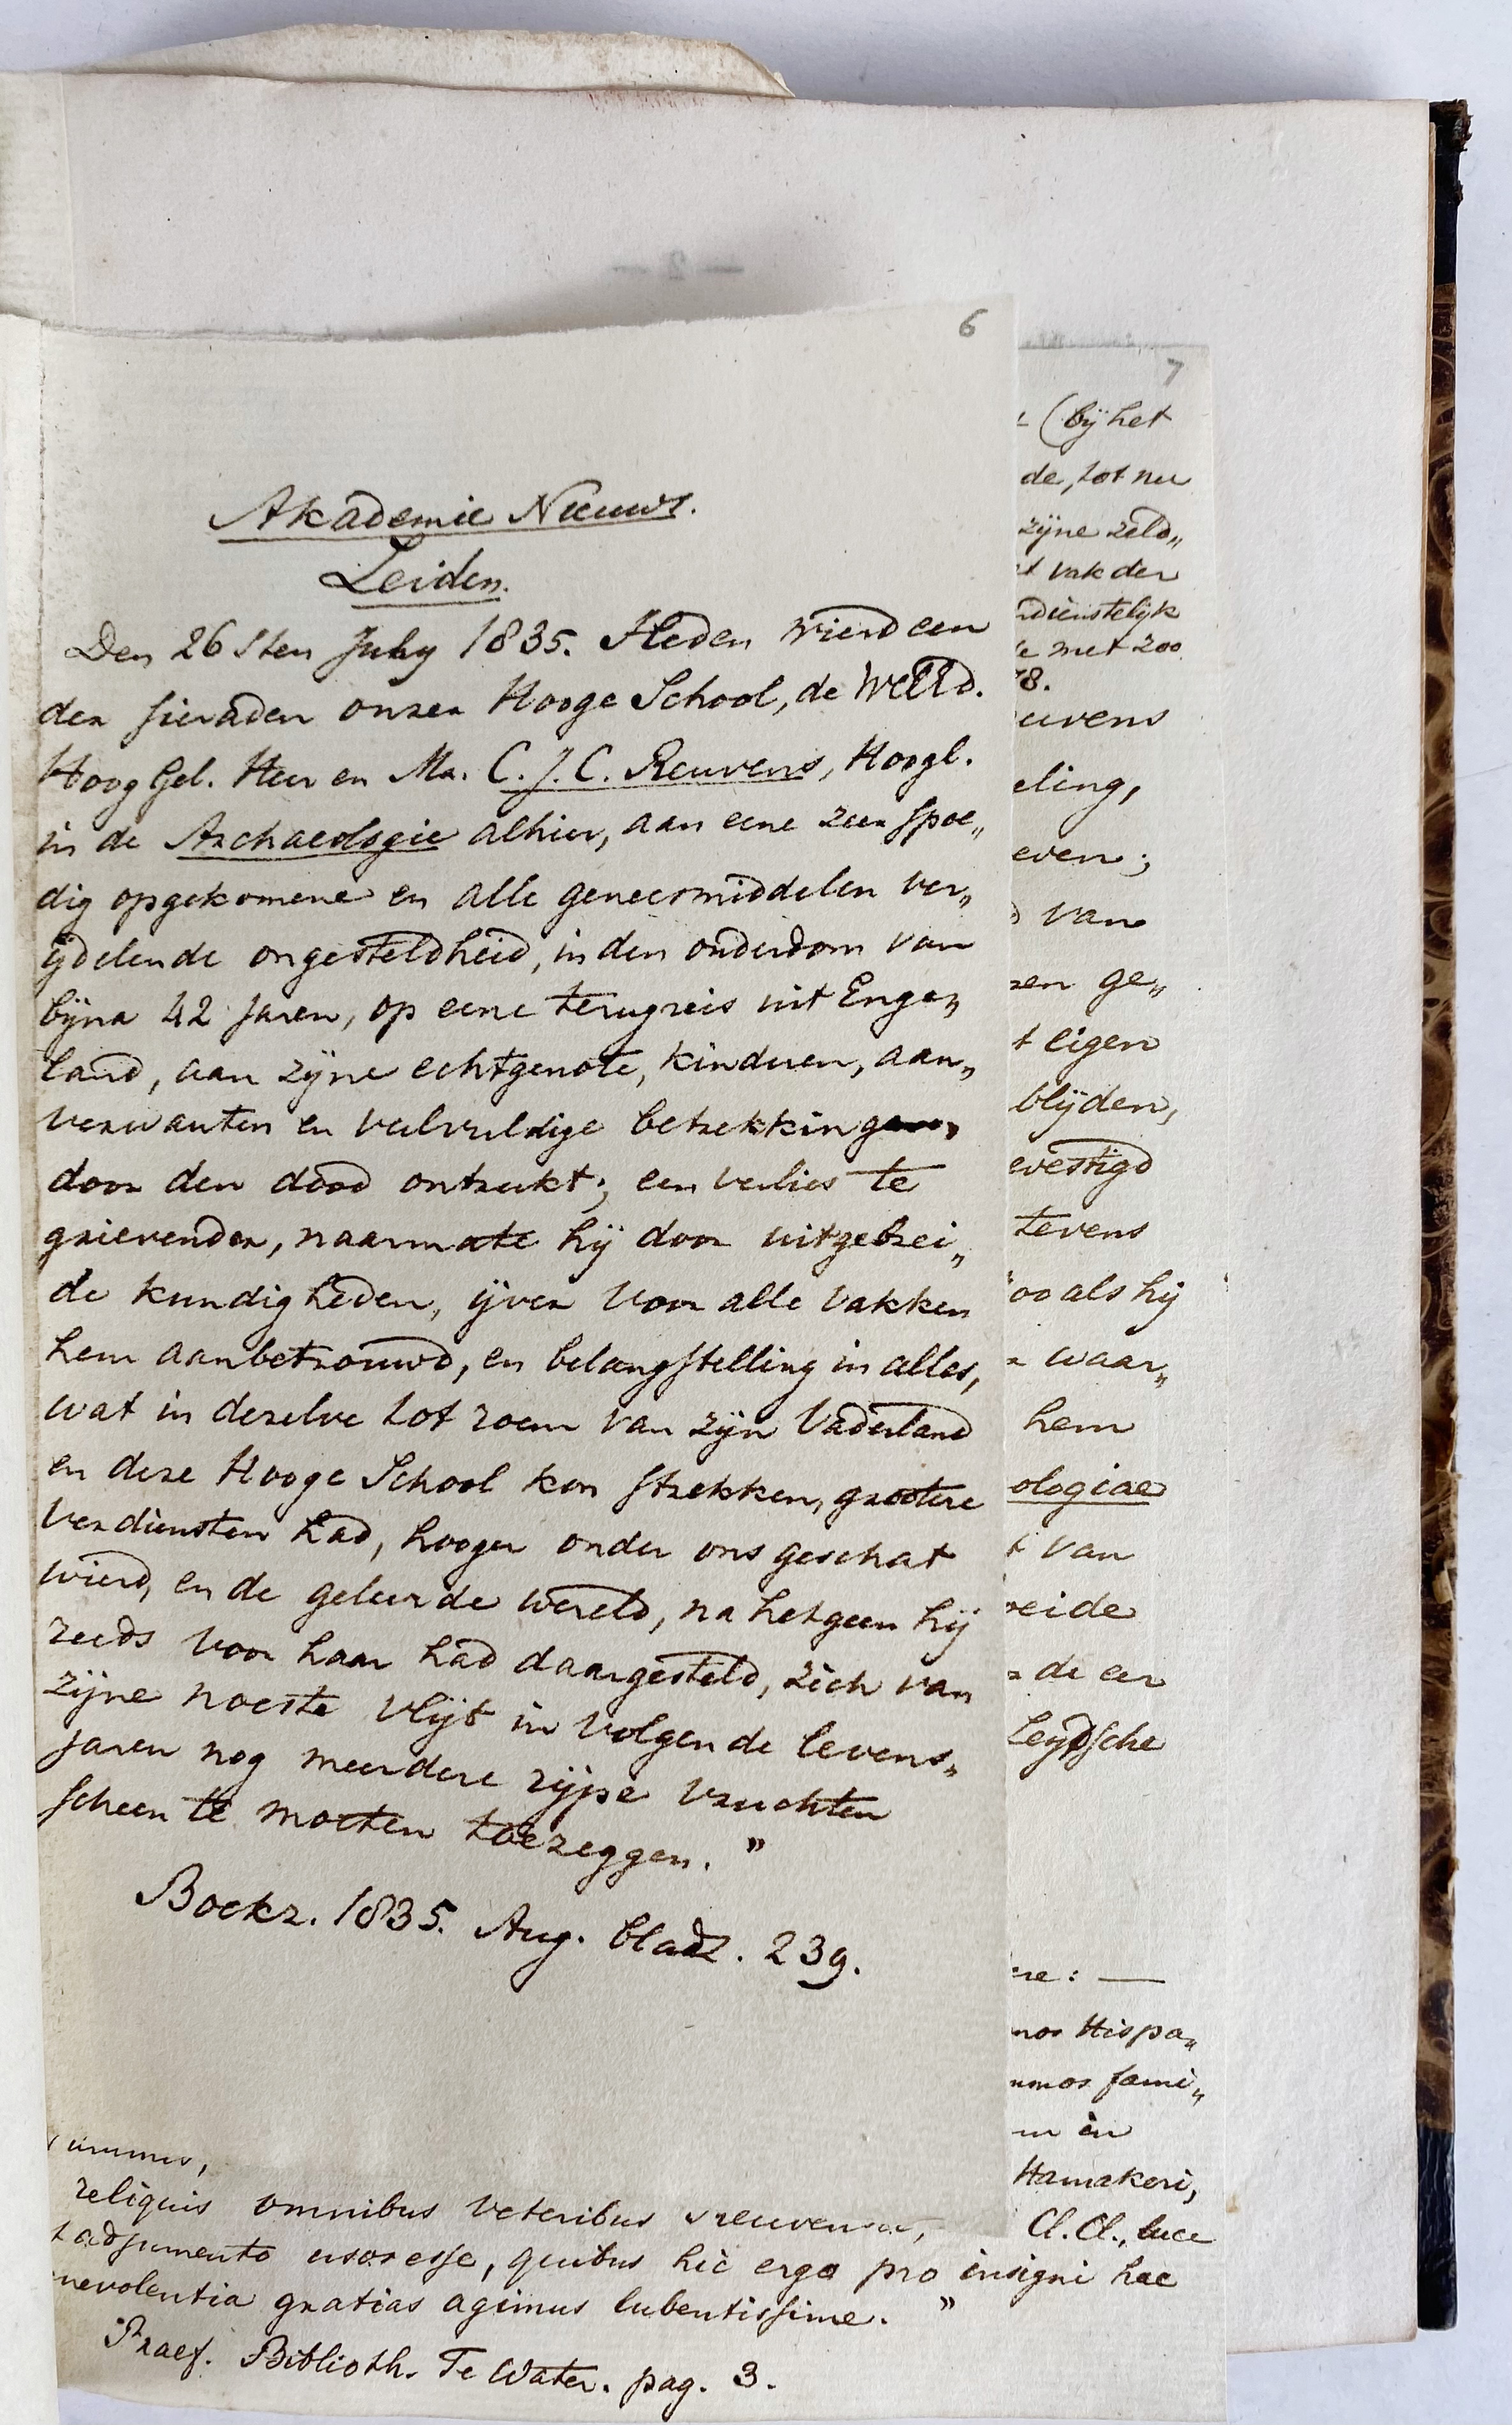 6
Akademie Nieuws.
Leiden.
Den 26sten July 1835. Heden wierd een
der sieraden onzer Hooge School, de WelEd.
Hoog Gel. Heer en Mr. C. J. C. Reuvens, Hoogl.
in de Archaeologie alhier, aan eene zeer spoe„
dig opgekomene en alle geneesmiddelen ver„
ijdelende ongesteldheid, in den ouderdom van
bijna 42 jaren, op eene terugreis uit Enge„
land, aan zijne echtgenote, kinderen, aan„
verwanten en veelvuldige betrekkingen,
door den dood ontrukt; een verlies te
grievender, naarmate hij door uitgebrei„
de kundigheden, ijver voor alle vakken
hem aanbetrouwd, en belangstelling in alles,
wat in dezelve tot roem van zijn Vaderland
en deze Hooge School kon strekken, grootere
verdiensten had, hooger onder ons geschat
wierd, en de geleerde wereld, na hetgeen hij
reeds voor haar had daargesteld, zich van
zijne noeste vlijt in volgende levens„
jaren nog meerdere rijpe vruchten
scheen te moeten toezeggen."
Boekz. 1835. Aug. bladz. 239.
7
(bij het
de, tot nu
zijne zeld„
vak der
dienstelijk
met 200
8.
euvens
eling,
even;
van
zen ge„
t eigen
blijden,
evestigd
tevens
oo als hij
waar„
hem
ologiae
van
eide
de eer
Leydsche
re: —
nos Hispa„
mmos fami„
in
Hamakeri,
Cl. Cl., luce
reliquis omnibus veteribus
adjumento usos esse, quibus hic ergo pro insigni hac
nevolentia gratias agimus lubentissime."
Praef. Biblioth. Te Water. pag. 3.